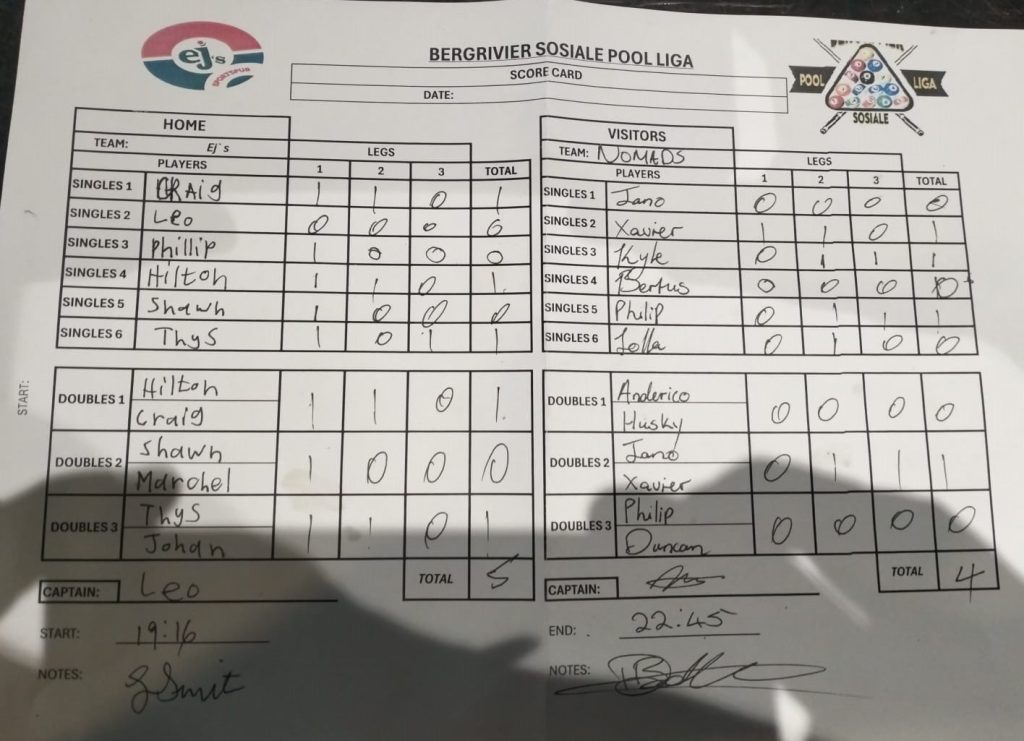 ej's
SPORTSPUB
BERGRIVIER SOSIALE POOL LIGA
SCORE CARD
DATE:
POOL LIGA
SOSIALE
HOME
TEAM: Ej's
LEGS
PLAYERS 1 2 3 TOTAL
SINGLES 1 CRAIG 1 1 0 1
SINGLES 2 Leo 0 0 0 0
SINGLES 3 Phillip 1 0 0 0
SINGLES 4 Hilton 1 1 0 1.
SINGLES 5 Shawn 1 0 0 0
SINGLES 6 Thys 1 0 1 1
START:
DOUBLES 1 Hilton
Craig 1 1 0 1.
DOUBLES 2 Shawn
Marchel 1 0 0 0
DOUBLES 3 Thys
Johan 1 1 0 1
TOTAL 5
CAPTAIN: Leo
START: 19:16
NOTES: Smit
VISITORS
TEAM: NOMADS
LEGS
PLAYERS 1 2 3 TOTAL
SINGLES 1 Jano 0 0 0 0
SINGLES 2 Xavier 1 1 0 1
SINGLES 3 Kyle 0 1 1 1
SINGLES 4 Bertus 0 0 0 0
SINGLES 5 Philip 0 1 1 1
SINGLES 6 Lolla 0 1 0 0
DOUBLES 1 Anderico
Husky 0 0 0 0
DOUBLES 2 Jano
Xavier 0 1 1 1
DOUBLES 3 Philip
Duncan 0 0 0 0
TOTAL 4
CAPTAIN:
END: 22:45
NOTES: